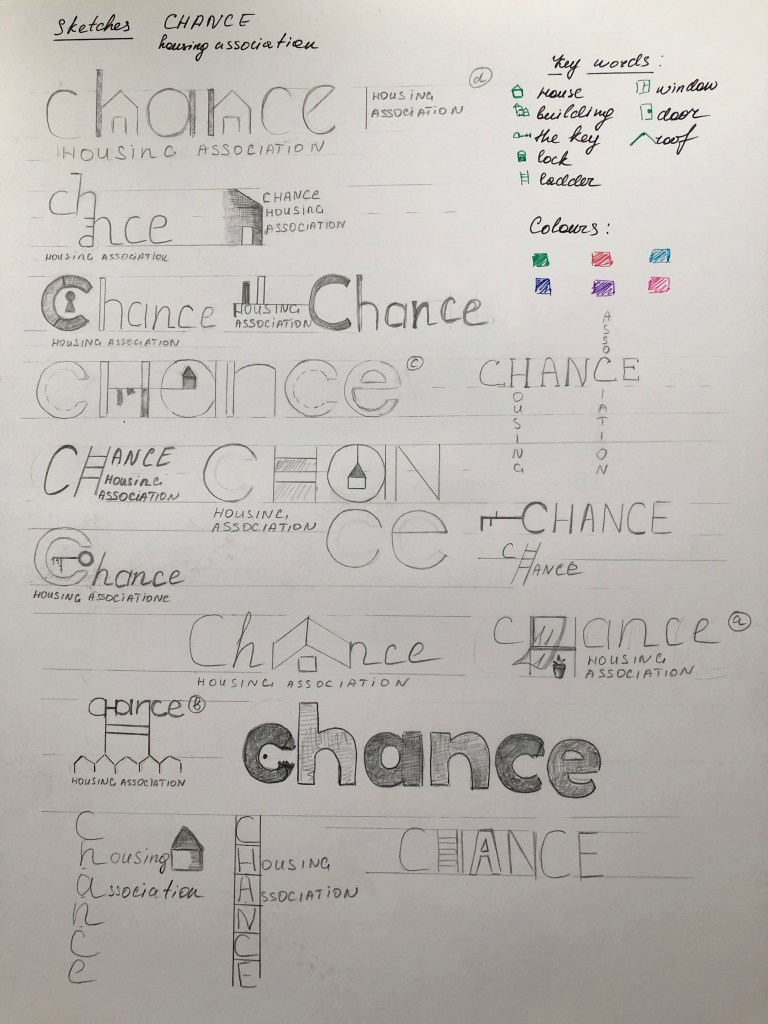 Sketches CHANCE
housing association
Key words:
House
building
the key
lock
ladder
window
door
roof
Colours:
chance
HOUSING ASSOCIATION
HOUSING
ASSOCIATION
d
chance
HOUSING ASSOCIATION
CHANCE
HOUSING
ASSOCIATION
Chance
HOUSING ASSOCIATION
HOUSING
ASSOCIATION
Chance
cHance
c
CHANCE
HOUSING
ASSOCIATION
CHANCE
HOUSING
ASSOCIATION
CHAN
ce
HOUSING
ASSOCIATION
CHANCE
CHANCE
Chance
HOUSING ASSOCIATIONE
Chance
HOUSING ASSOCIATION
CHance
a
HOUSING
ASSOCIATION
cHance
B
HOUSING ASSOCIATION
chance
Chance
Housing
association
CHANCE
HOUSING
ASSOCIATION
CHANCE